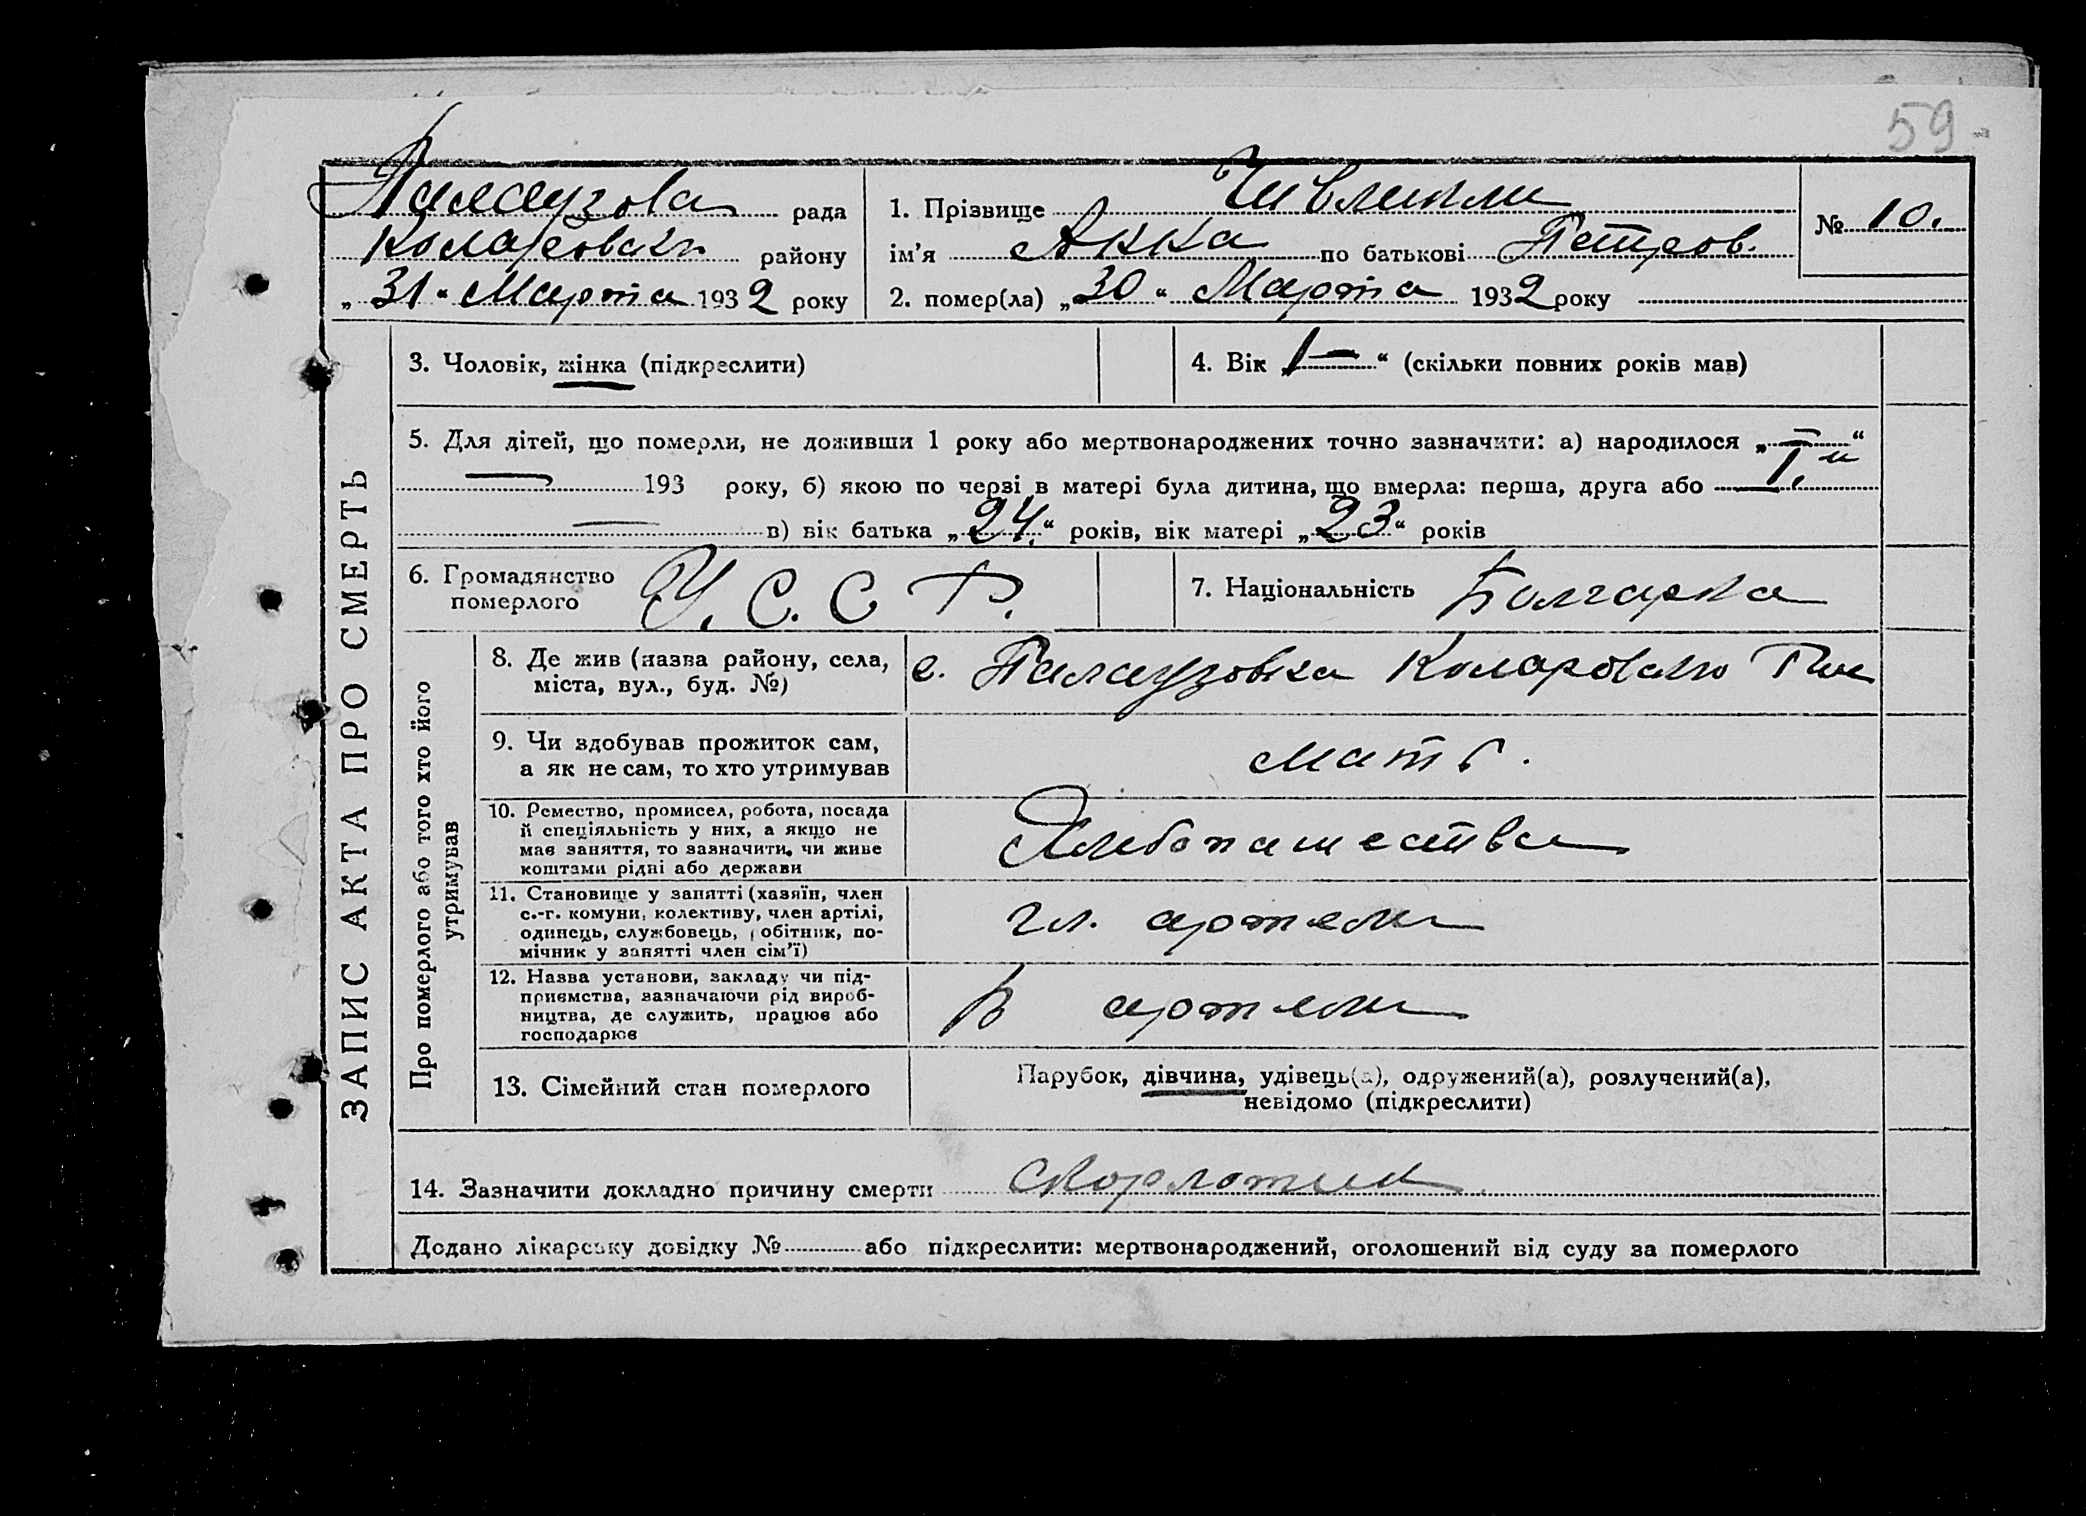 59
Палаузова рада
Коларовськ району
„ 31 “ Марта 1932 року
1. Прізвище Чивликли
ім’я Анна по батькові Петров.
2. помер(ла) „ 30 “ Марта 1932 року
№ 10.
ЗАПИС АКТА ПРО СМЕРТЬ
3. Чоловік, жінка (підкреслити)
4. Вік „ 1 — “ (скільки повних років мав)
5. Для дітей, що померли, не доживши 1 року або мертвонароджених точно зазначити: а) народилося „ — “
— 193 року, б) якою по черзі в матері була дитина, що вмерла: перша, друга або I.
— в) вік батька „ 24. “ років, вік матері „ 23 “ років
6. Громадянство
померлого
У. С. С Р.
7. Національність Болгарка
Про померлого або того хто його
утримував
8. Де жив (назва району, села,
міста, вул., буд. №)
с. Палаузовка Коларовскю
9. Чи здобував прожиток сам,
а як не сам, то хто утримував
мать.
10. Ремество, промисел, робота, посада
й спеціяльність у них, а якщо не
має заняття, то зазначити, чи живе
коштами рідні або держави
Хлебопашества
11. Становище у занятті (хазяїн, член
с.-г. комуни, колективу, член артілі,
одинець, службовець, робітник, по-
мічник у занятті член сім’ї)
чл. артели
12. Назва установи, закладу чи під-
приємства, зазначаючи рід вироб-
ництва, де служить, працює або
господарює
В артели
13. Сімейний стан померлого
Парубок, дівчина, удівець(а), одружений(а), розлучений(а),
невідомо (підкреслити)
14. Зазначити докладно причину смерти скорлотик
Додано лікарську довідку № або підкреслити: мертвонароджений, оголошений від суду за померлого